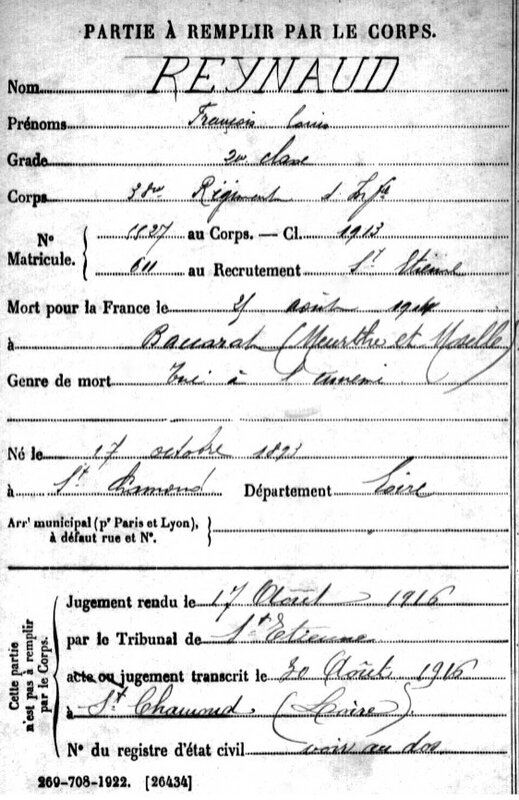 PARTIE À REMPLIR PAR LE CORPS.
Nom REYNAUD
Prénoms François Louis
Grade 2e classe
Corps 38me Régiment d'Infie
N° Matricule. { 5527 au Corps. — Cl. 1913
611 au Recrutement St Etienne
Mort pour la France le 25 août 1914
à Baccarat (Meurthe et Moselle)
Genre de mort Tué à l'ennemi
Né le 17 octobre 1893
à St Chamond Département Loire
Arrt municipal (pr Paris et Lyon), à défaut rue et N°. }
Cette partie n'est pas à remplir par le Corps.
Jugement rendu le 17 Août 1916
par le Tribunal de St Etienne
acte ou jugement transcrit le 30 Août 1916
à St Chamond (Loire)
N° du registre d'état civil voir au dos
269-708-1922. [26434]